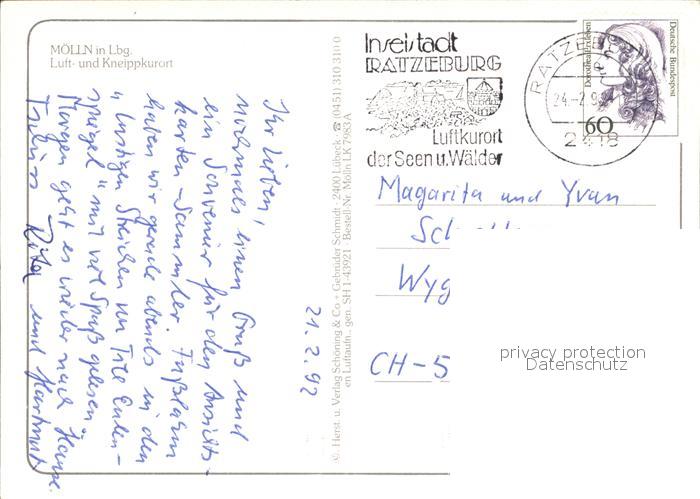 MÖLLN in Lbg.
Luft- und Kneippkurort
Inselstadt
RATZEBURG
Luftkurort
der Seen u. Wälder
RATZEBURG
24.-2.92
2418
Deutsche Bundespost
Dorothea Erxleben
60
Magarita und Yvan
Wyg
CH-5
privacy protection
Datenschutz
21.2.92
Ihr Lieben!
Nochmals einen Gruß und
ein Souvenir für den Ansichts-
karten-Sammler. Fußlahm
haben wir gerade abends in den
"lustigen Streichen von Till Eulen-
spiegel" mit viel Spaß gelesen.
Morgen geht es wieder nach Hause.
Tschüss Rita und Hartmut
Herst. u. Verlag Schöning & Co + Gebrüder Schmidt · 2400 Lübeck ☎ (0451) 310 310 0
en Luftaufn., gen. SH 1-43921 Bestell-Nr. Mölln LK 7983 A